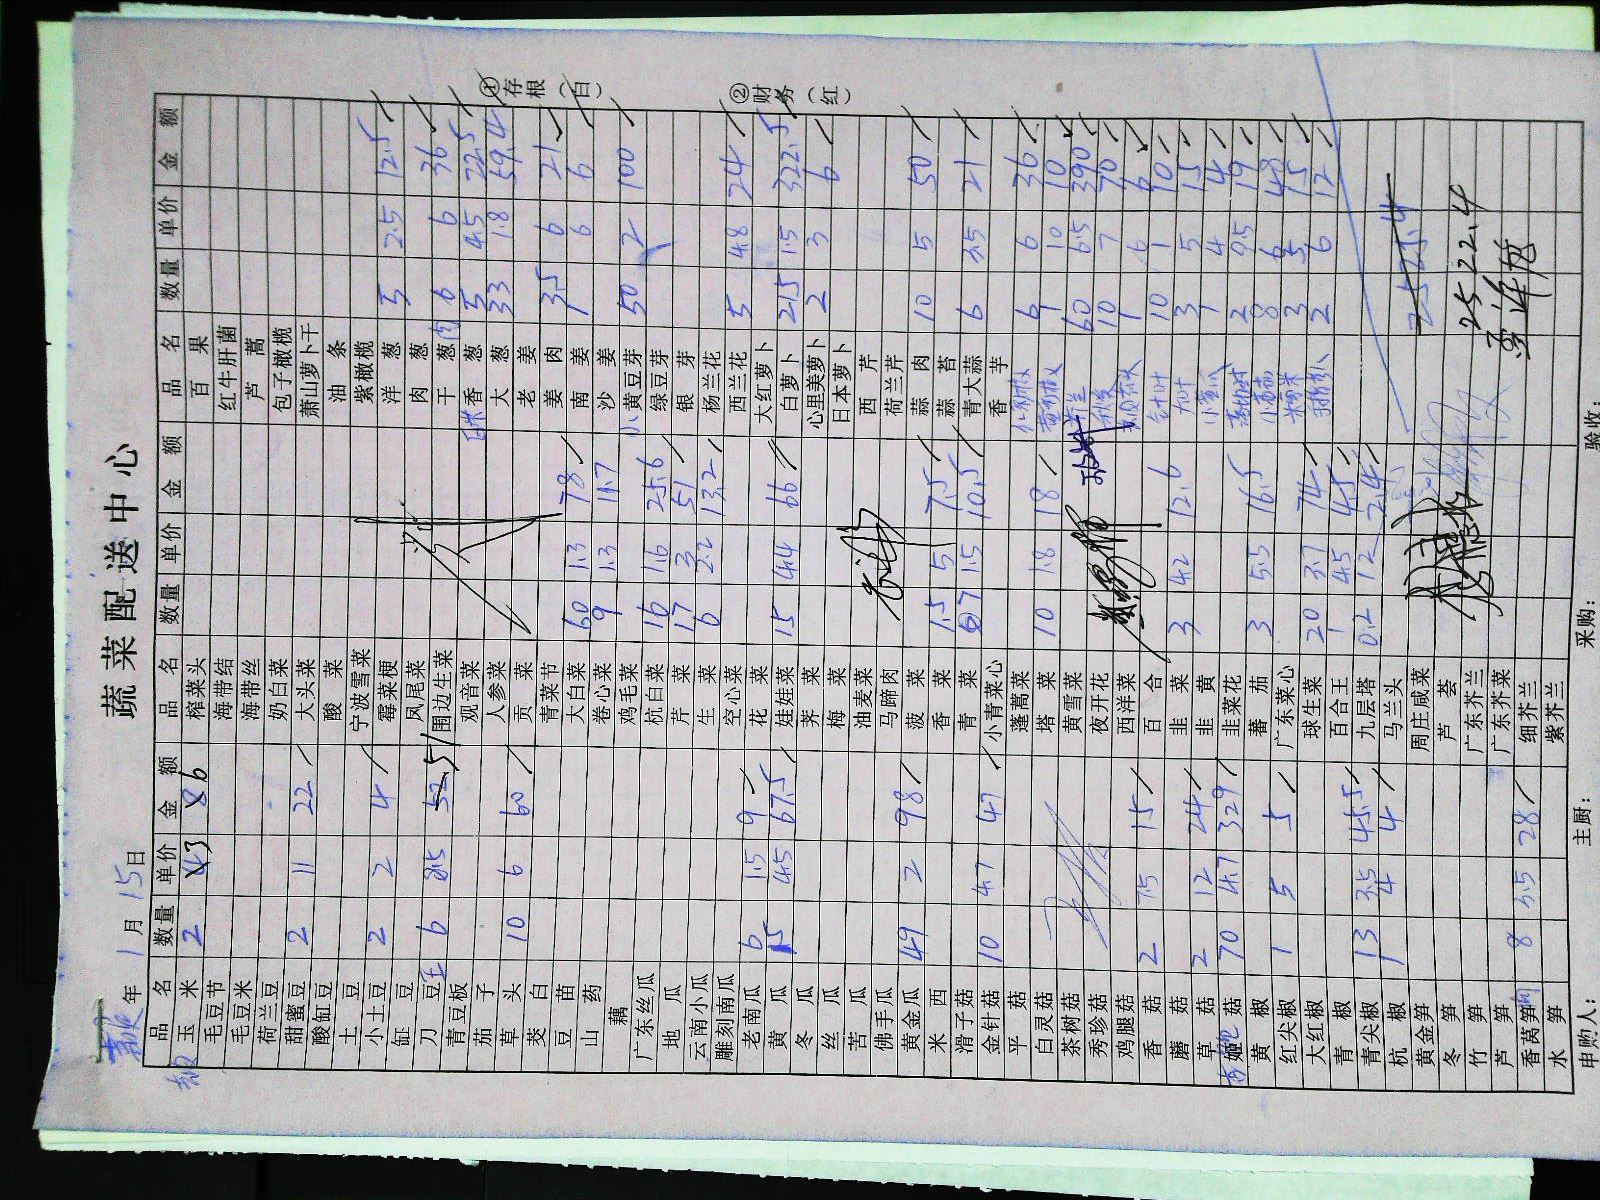 蔬菜配送中心
年 1 月 15 日
品名 数量 单价 金额 品名 数量 单价 金额 品名 数量 单价 金额
玉米 2 43 86 榨菜头 百果
毛豆节 海带结 红牛肝菌
毛豆米 海带丝 芦蒿
荷兰豆 奶白菜 包子橄榄
甜蜜豆 2 11 22 大头菜 萧山萝卜干
酸缸豆 酸菜 油条
土豆 宁波雪菜 紫橄榄
小土豆 2 2 4 霉菜梗 洋葱 5 2.5 12.5
缸豆 凤尾菜 肉葱
刀豆 6 8.5 52.5 围边生菜 干葱肉 6 6 36
青豆板 观音菜 香葱 5 4.5 22.5
茄子 人参菜 大葱 33 1.8 59.4
草头 10 6 60 贡菜 老姜
茭白 青菜节 姜肉 3.5 6 21
豆苗 大白菜 60 1.3 78 南姜 1 6 6
山药 卷心菜 9 1.3 11.7 沙姜
藕 鸡毛菜 小黄豆芽 50 2 100
广东丝瓜 杭白菜 16 1.6 25.6 绿豆芽
地瓜 芹菜 17 3 51 银芽
云南小瓜 生菜 6 2.2 13.2 杨兰花
雕刻南瓜 空心菜 西兰花 5 4.8 24
老南瓜 6 1.5 9 花菜 大红萝卜
黄瓜 15 4.5 67.5 娃娃菜 15 4.4 66 白萝卜 215 1.5 322.5
冬瓜 荠菜 心里美萝卜 2 3 6
丝瓜 梅菜 日本萝卜
苦瓜 油麦菜 西芹
佛手瓜 马蹄肉 荷兰芹
黄金瓜 49 2 98 菠菜 蒜肉 10 5 50
米西 香菜 1.5 5 7.5 蒜苔
滑子菇 青菜 7 1.5 10.5 青大蒜 6 3.5 21
金针菇 10 4.7 47 小青菜心 香芋
平菇 蓬蒿菜 6 6 36
白灵菇 塔菜 10 1.8 18 1 10 10
茶树菇 黄雪菜 60 6.5 390
秀珍菇 夜开花 10 7 70
鸡腿菇 西洋菜 1 6 6
香菇 2 7.5 15 百合 10 1 10
蘑菇 韭菜 3 4.2 12.6 3 5 15
草菇 2 12 24 韭黄 1 4 4
姬菇 70 4.7 329 韭菜花 2 9.5 19
黄椒 蕃茄 3 5.5 16.5 8 6 48
红尖椒 1 5 5 广东菜心 3 5 15
大红椒 球生菜 20 3.7 74 2 6 12
青椒 百合王 1 4.5 4.5
青尖椒 13 3.5 45.5 九层塔 0.2 12 2.4
杭椒 1 4 4 马兰头 2525.4
黄金笋 周庄咸菜
冬笋 芦荟
竹笋 广东芥兰 2522.4
芦笋 广东芥菜
香莴笋 8 3.5 28 细芥兰
水笋 紫芥兰
申购人： 主厨： 采购： 验收：
①存根（白）
②财务（红）